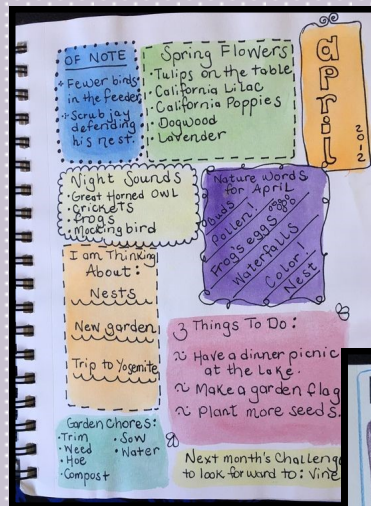 OF NOTE
Fewer birds
in the feeder
Scrub jay
defending
his nest.
Spring Flowers
· Tulips on the table
· California Lilac
· California Poppies
· Dogwood
· Lavender
april
2012
Night Sounds
· Great Horned Owl
· Crickets
· Frogs
· Mockingbird
Nature Words
for April
Buds
Pollen!
Frog's eggs
Waterfalls
Color!
Nest
I am Thinking
About:
Nests
New garden
Trip to Yosemite
3 Things To Do:
~ Have a dinner picnic
at the Lake.
~ Make a garden flag
~ Plant more seeds.
Garden Chores:
· Trim
· Weed
· Hoe
· Compost
· Sow
· Water
Next month's Challenge
to look forward to: Vine